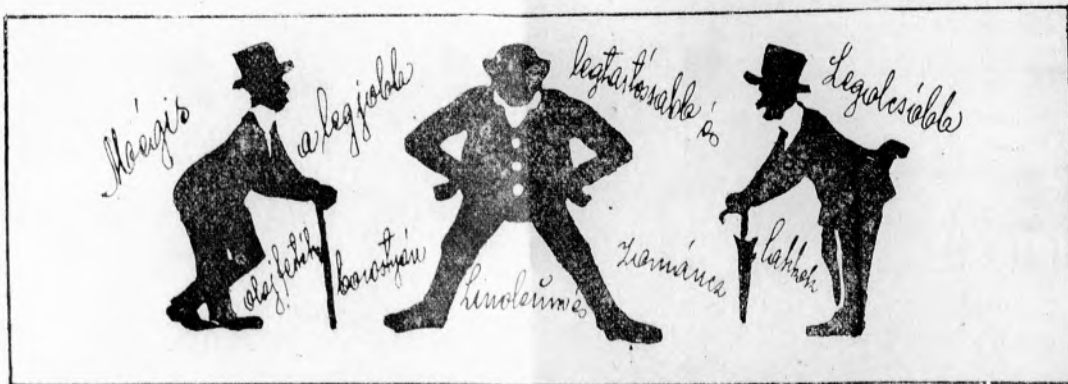 Mégis a legjobb legtartósabb és Legolcsóbb
olajfesték borostyán Linoleum és Zománcz lakkok